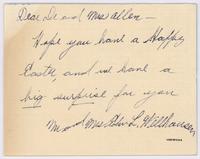 Dear Dr and Mrs Allen –
Hope you have a Happy
Easter, and we have a
big surprise for you
Mr and Mrs L. Millhausen